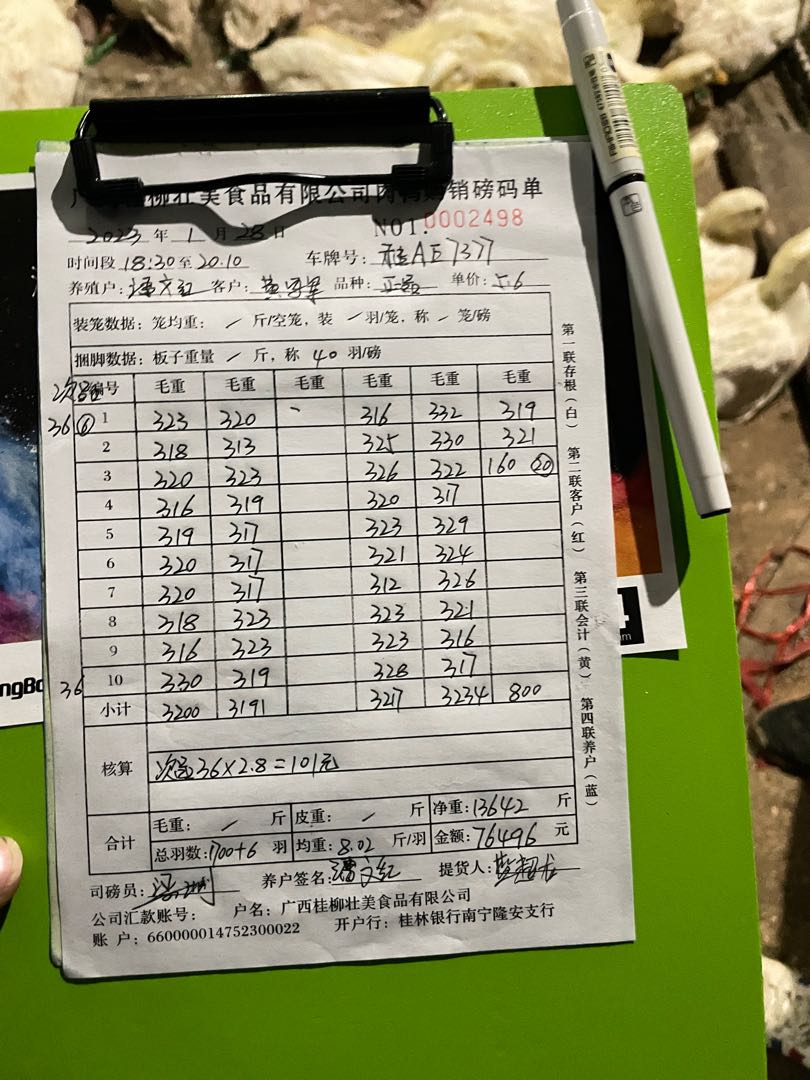 柳壮美食品有限公司肉鸭 销磅码单
2023 年 1 月 28 日 NO1: 0002498
时间段 18:30 至 20.10 车牌号: 桂AE7377
养殖户: 潘文红 客户: 品种: 正品 单价: 5.6
装笼数据: 笼均重: / 斤/空笼, 装 / 羽/笼, 称 / 笼/磅
捆脚数据: 板子重量 / 斤, 称 40 羽/磅
次品
编号 毛重 毛重 毛重 毛重 毛重 毛重
36 ⑥ 1 323 320 - 316 332 319
2 318 313 325 330 321
3 320 323 326 322 160 ⑳
4 316 319 320 317
5 319 317 323 329
6 320 317 321 324
7 320 317 312 326
8 318 323 323 321
9 316 323 323 316
36 10 330 319 328 317
小计 3200 3191 3217 3234 800
核算 次品36×2.8=101元
合计 毛重: / 斤 皮重: / 斤 净重: 13642 斤
总羽数: 1700+6 羽 均重: 8.02 斤/羽 金额: 76496 元
司磅员: 养户签名: 潘文红 提货人:
公司汇款账号: 户名: 广西桂柳壮美食品有限公司
账 户: 660000014752300022 开户行: 桂林银行南宁隆安支行
第一联存根(白) 第二联客户(红) 第三联会计(黄) 第四联养户(蓝)